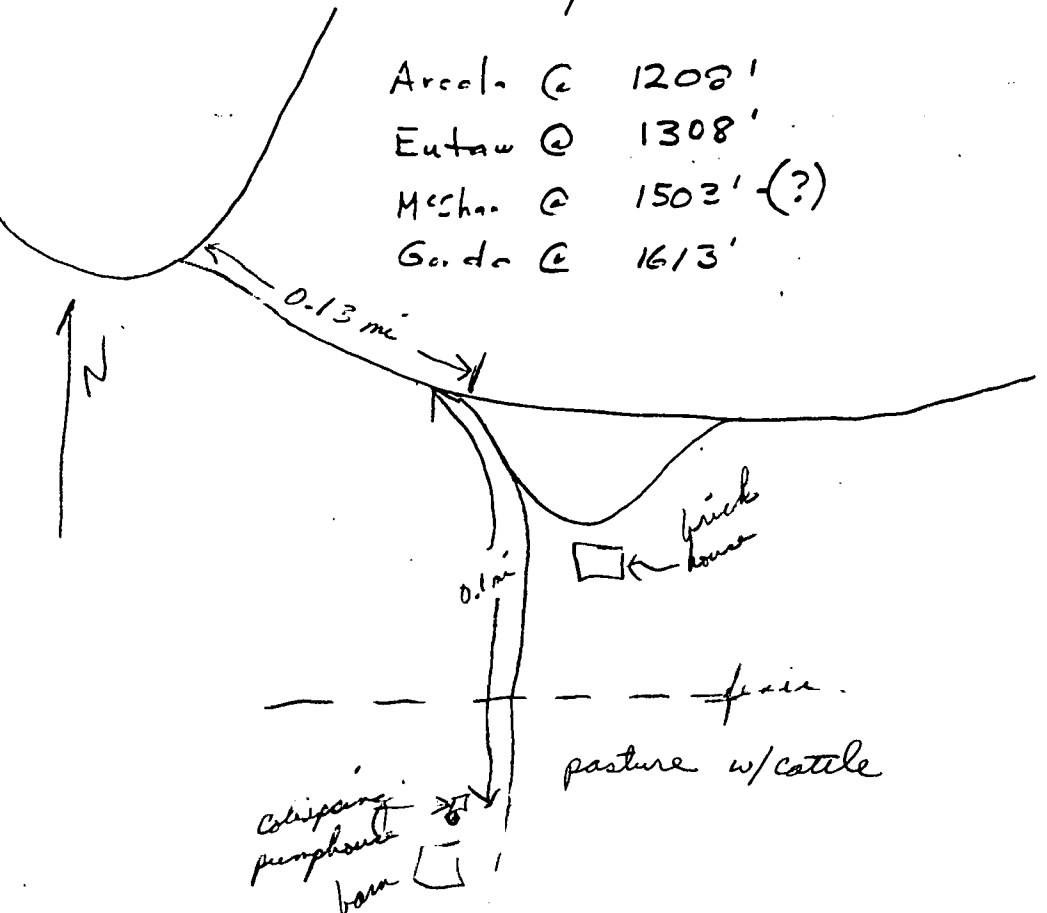 Arcola @ 1208'
Eutaw @ 1308'
McShan @ 1502' (?)
Gordo @ 1613'
0.13 mi
N
brick
house
0.1 mi
pasture w/cattle
pumphouse
barn